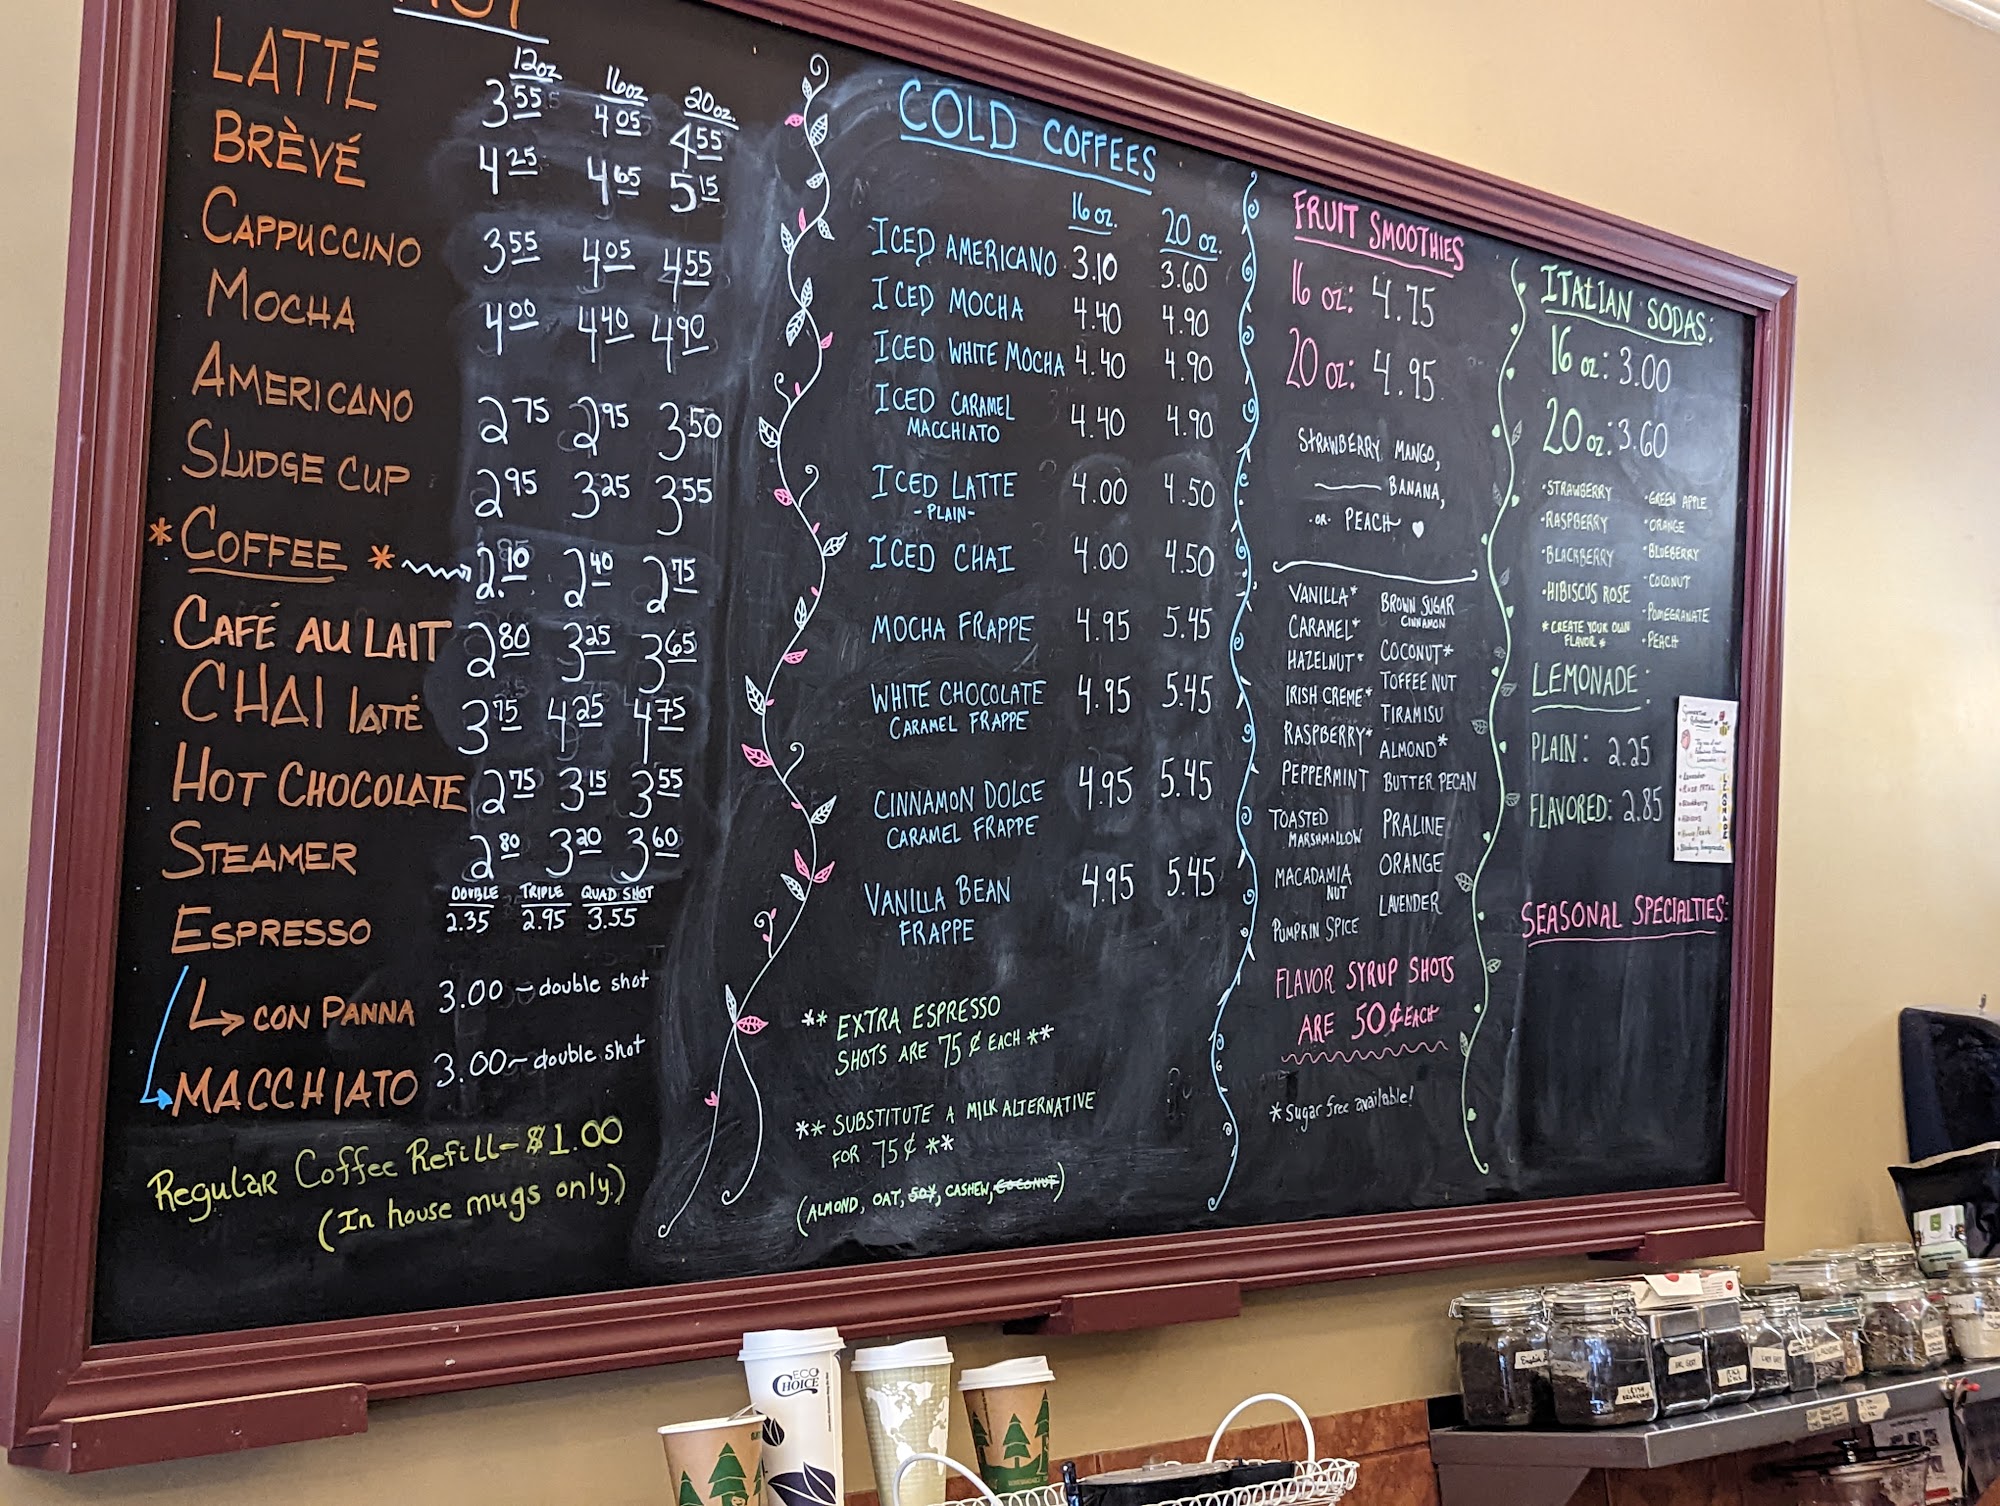 HOT
12oz 16oz 20oz.
LATTÉ 3.55 4.05 4.55
BRÈVÉ 4.25 4.65 5.15
CAPPUCCINO 3.55 4.05 4.55
MOCHA 4.00 4.40 4.90
AMERICANO 2.75 2.95 3.50
SLUDGE CUP 2.95 3.25 3.55
* COFFEE * 2.10 2.40 2.75
CAFÉ AU LAIT 2.80 3.25 3.65
CHAI LATTÉ 3.75 4.25 4.75
HOT CHOCOLATE 2.75 3.15 3.55
STEAMER 2.80 3.20 3.60
DOUBLE TRIPLE QUAD SHOT
ESPRESSO 2.35 2.95 3.55
CON PANNA 3.00 - double shot
MACCHIATO 3.00 - double shot
Regular Coffee Refill - $1.00
(In house mugs only.)
COLD COFFEES
16 oz. 20 oz.
ICED AMERICANO 3.10 3.60
ICED MOCHA 4.40 4.90
ICED WHITE MOCHA 4.40 4.90
ICED CARAMEL
MACCHIATO 4.40 4.90
ICED LATTE 4.00 4.50
-PLAIN-
ICED CHAI 4.00 4.50
MOCHA FRAPPE 4.95 5.45
WHITE CHOCOLATE 4.95 5.45
CARAMEL FRAPPE
CINNAMON DOLCE 4.95 5.45
CARAMEL FRAPPE
VANILLA BEAN 4.95 5.45
FRAPPE
** EXTRA ESPRESSO
SHOTS ARE 75¢ EACH **
** SUBSTITUTE A MILK ALTERNATIVE
FOR 75¢ **
(ALMOND, OAT, SOY, CASHEW, COCONUT)
FRUIT SMOOTHIES
16 oz: 4.75
20 oz: 4.95
STRAWBERRY, MANGO,
BANANA,
-OR- PEACH
VANILLA* BROWN SUGAR
CINNAMON
CARAMEL* COCONUT*
HAZELNUT* TOFFEE NUT
IRISH CREME* TIRAMISU
RASPBERRY* ALMOND*
PEPPERMINT BUTTER PECAN
TOASTED PRALINE
MARSHMALLOW
MACADAMIA ORANGE
NUT
PUMPKIN SPICE LAVENDER
FLAVOR SYRUP SHOTS
ARE 50¢ EACH
*Sugar free available!
ITALIAN SODAS:
16 oz: 3.00
20 oz: 3.60
•STRAWBERRY •GREEN APPLE
•RASPBERRY •ORANGE
•BLACKBERRY •BLUEBERRY
•HIBISCUS ROSE •COCONUT
*CREATE YOUR OWN •POMEGRANATE
FLAVOR* •PEACH
LEMONADE:
PLAIN: 2.25
FLAVORED: 2.85
LEMONADE
SEASONAL SPECIALTIES:
ECO
CHOICE